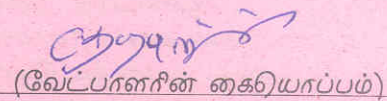 (வேட்பாளரின் கையொப்பம்)